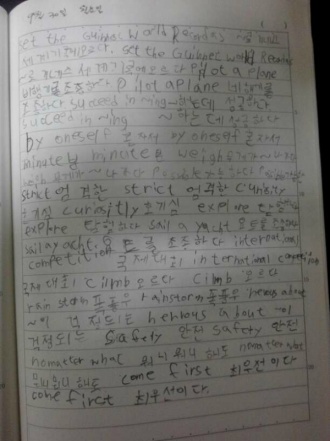 set the Guinnec World Recorday ~로
세계기록세우다. set the Guinnec world Recorday
~로 기네스 세계기록세우다 Pilot a plane
비행기를조종하다 Pilot a plane 비행기를
조종하다 succeed in ~ing ~하는데 성공하다
succeed in ~ing ~하는데 성공하다
by oneself 혼자서 by oneself 혼자서
minute 분 minute 분 weigh 무게가~나가다
weigh 무게가 ~나가다
strict 엄격한 strict 엄격한 curiosity
호기심 curiositly 호기심 explore 탐험하다
explore 탐험하다 sail a yacht 요트를 조종하다
sail a yacht. 요트를 조종하다 international
competition 국제대회 international competition
국제대회 Cilmb 오르다 Cilmb 오르다
rain storm 폭풍우 rainstorm 폭풍우 nervous about
~이 걱정되는 nervous about ~이
걱정되는 Safety 안전 safety 안전
no matter what 뭐니뭐니 해도 no matter what
뭐니뭐니 해도 come first 최우선이다
come first 최우선이다.